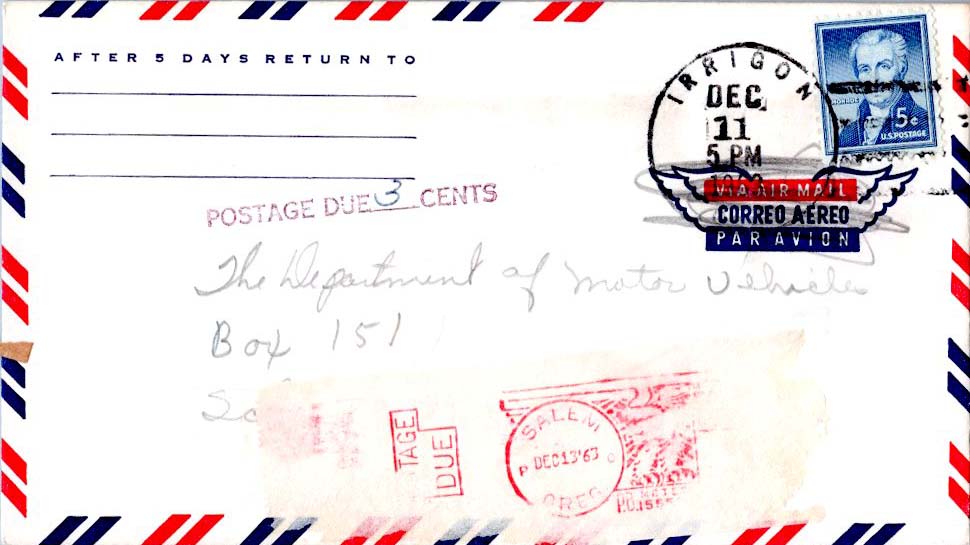 AFTER 5 DAYS RETURN TO
IRRIGON
DEC
11
5 PM
MONROE
5¢
U.S. POSTAGE
VIA AIR MAIL
CORREO AEREO
PAR AVION
POSTAGE DUE 3 CENTS
The Department of Motor Vehicles
Box 151
TAGE
DUE
SALEM
DEC 13 '63
OREG
P.O.